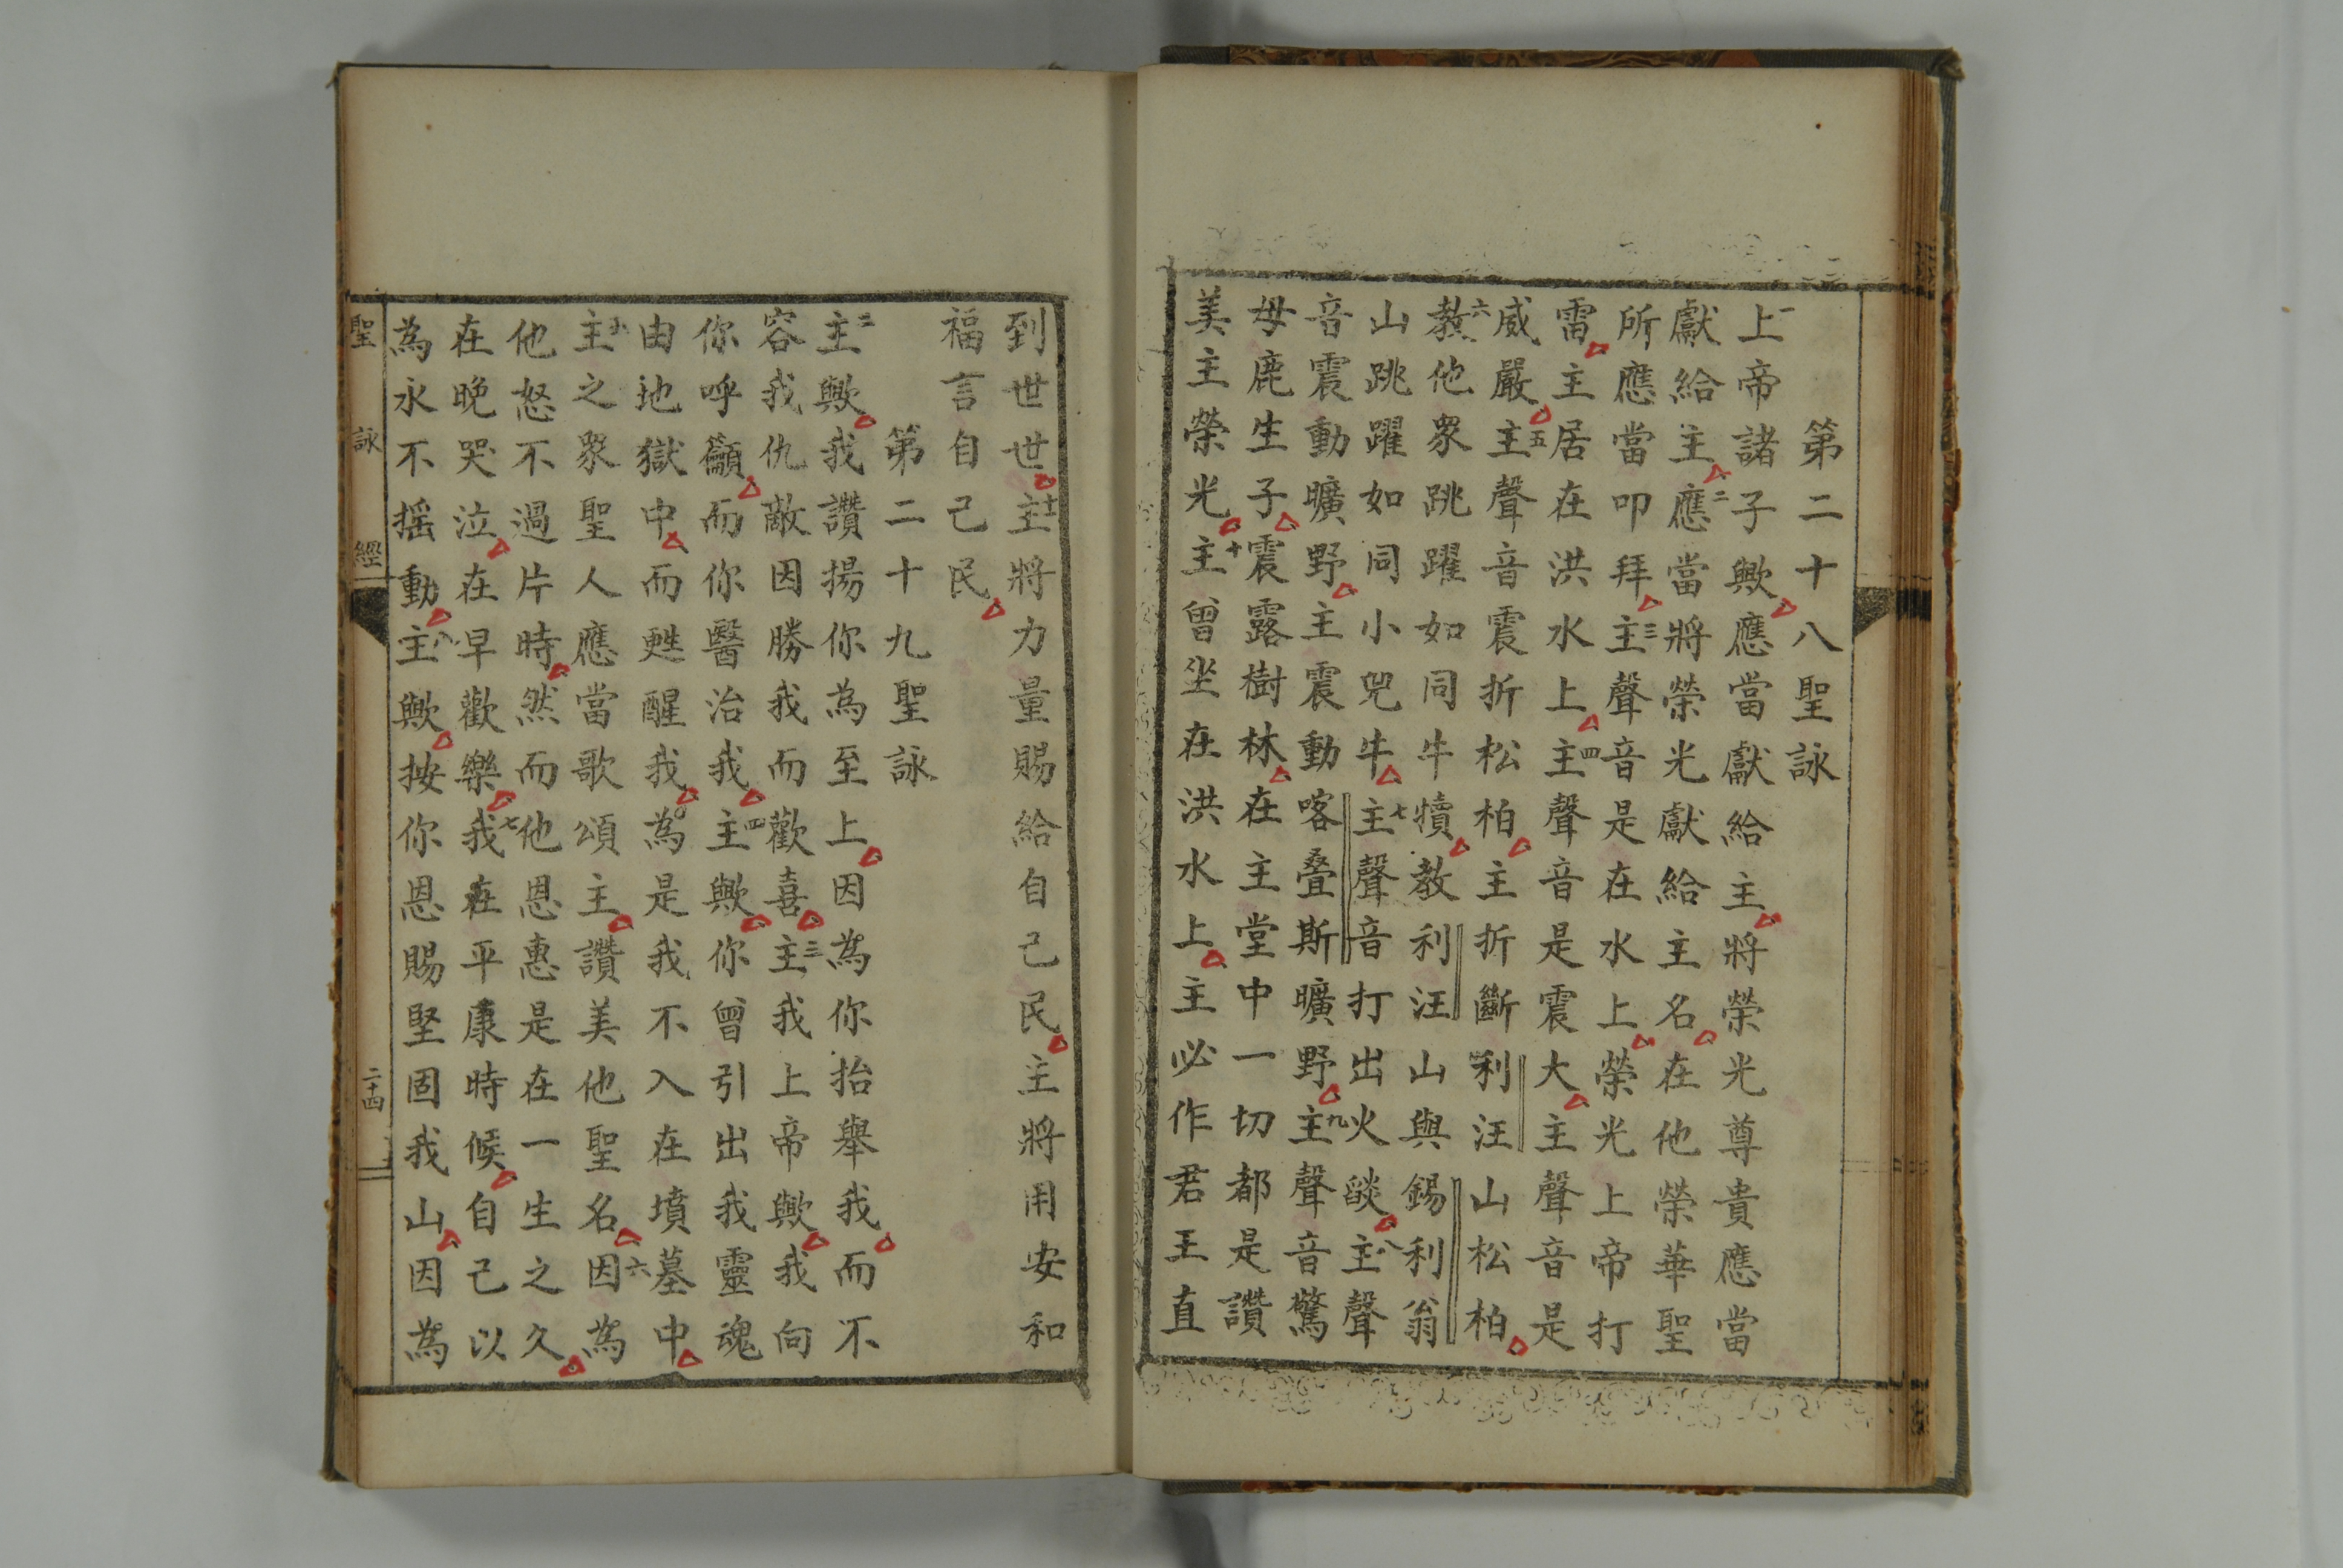 第二十八聖詠
一上帝諸子歟應當獻給主將榮光尊貴應當
獻給主二應當將榮光獻給主名在他榮華聖
所應當叩拜三主聲音是在水上榮光上帝打
雷主居在洪水上四主聲音是震大主聲音是
威嚴五主聲音震折松柏主折斷利汪山松柏
六教他眾跳躍如同牛犢教利汪山與錫利翁
山跳躍如同小兕牛七主聲音打出火燄八主聲
音震動曠野主震動喀叠斯曠野九主聲音驚
母鹿生子震露樹林在主堂中一切都是讚
美主榮光十主曾坐在洪水上主必作君王直
到世世十一主將力量賜給自己民主將用安和
福言自己民
第二十九聖詠
二主歟我讚揚你為至上因為你抬舉我而不
容我仇敵因勝我而歡喜三主我上帝歟我向
你呼籲而你醫治我四主歟你曾引出我靈魂
由地獄中而甦醒我為是我不入在墳墓中
五主之眾聖人應當歌頌主讚美他聖名六因為
他怒不過片時然而他恩惠是在一生之久
在晚哭泣在早歡樂七我在平康時候自己以
為永不搖動八主歟按你恩賜堅固我山因為
聖詠經 二十四